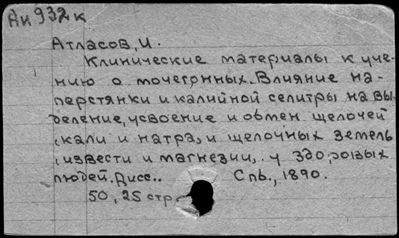 Ан 932к
Атласов, И.
Клинические материалы к уче-
нию о мочегонных. Влияние на-
перстянки и калийной селитры на вы-
деление, усвоение и обмен щелочей
, кали и натра, и щелочных земель
, извести и магнезии, . у здоровых
людей. Дисс.. Спб., 1890.
50, 25 стр.